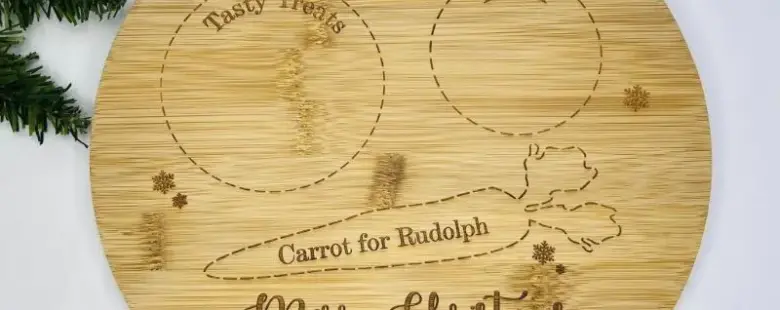 Tasty Treats
Carrot for Rudolph